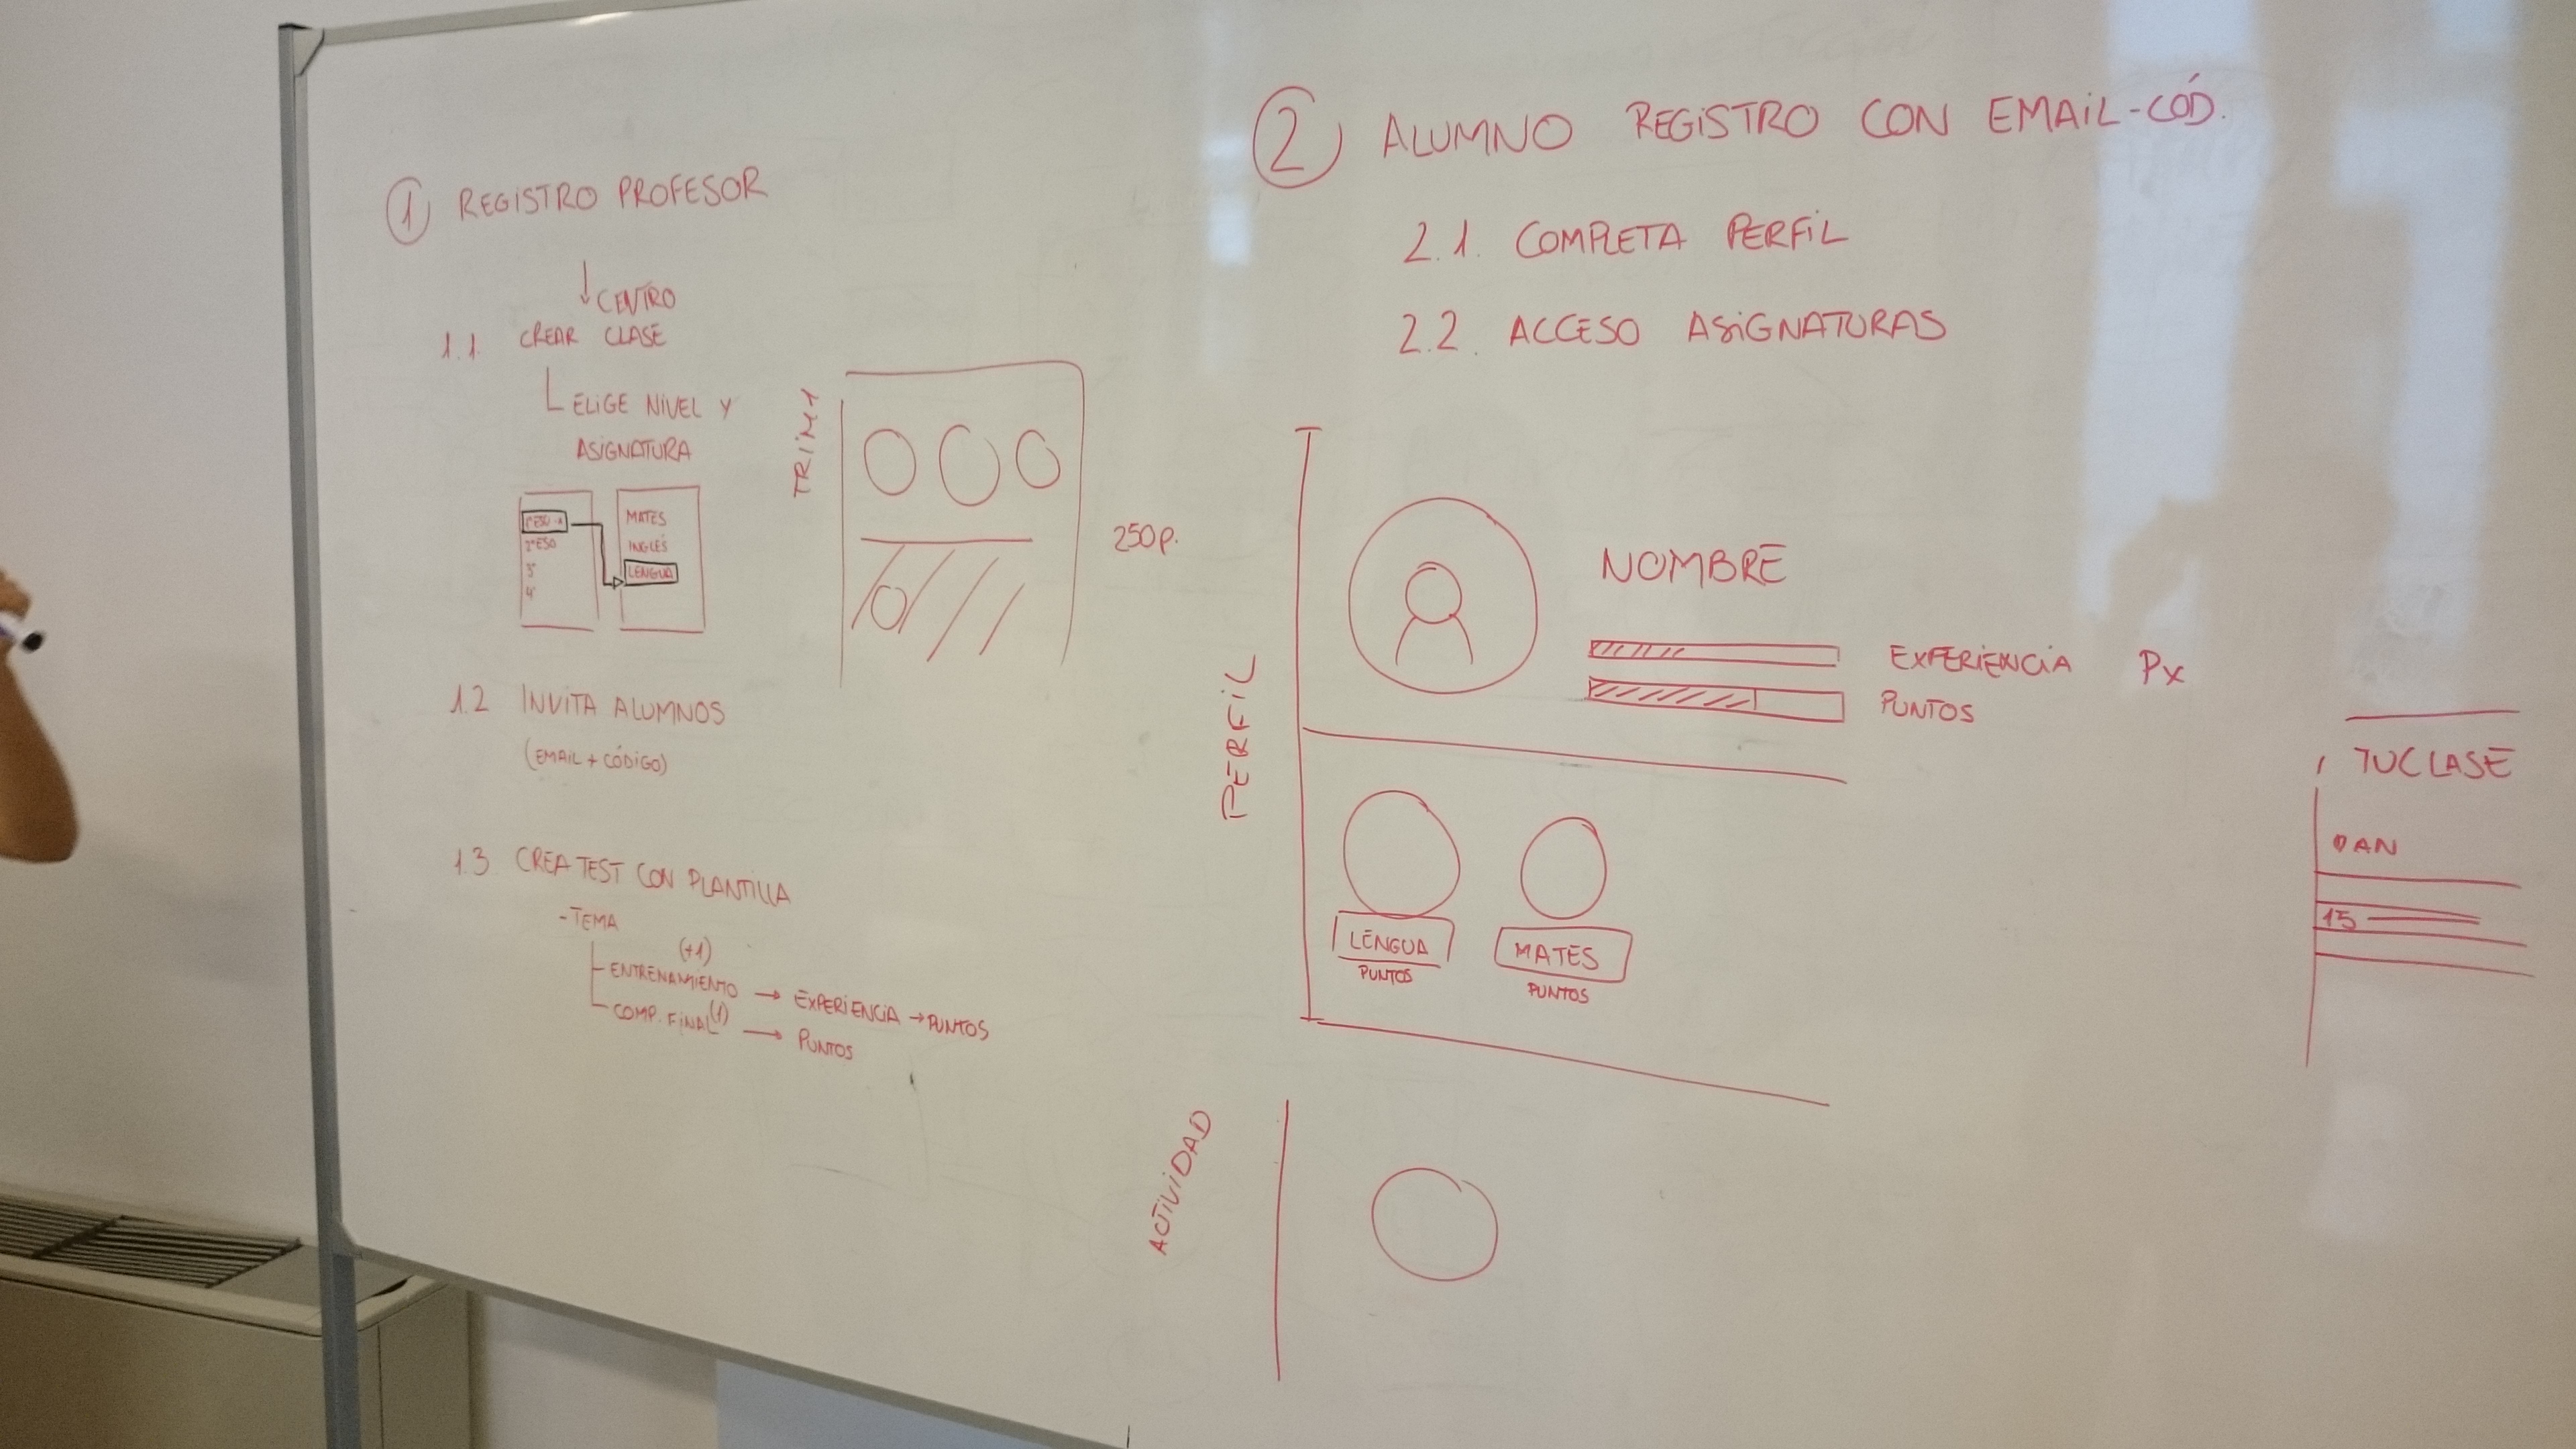 1 REGISTRO PROFESOR
CENTRO
1.1. CREAR CLASE
ELIGE NIVEL Y
ASIGNATURA
1º ESO - A
2º ESO
3º
4º
MATES
INGLÉS
LENGUA
TRIM 1
250 p.
1.2 INVITA ALUMNOS
(EMAIL + CÓDIGO)
1.3 CREA TEST CON PLANTILLA
- TEMA
(+1)
ENTRENAMIENTO → EXPERIENCIA → PUNTOS
COMP. FINAL (1) → PUNTOS
2 ALUMNO REGISTRO CON EMAIL-CÓD.
2.1. COMPLETA PERFIL
2.2. ACCESO ASIGNATURAS
PERFIL
NOMBRE
EXPERIENCIA Px
PUNTOS
LENGUA
PUNTOS
MATES
PUNTOS
ACTIVIDAD
TU CLASE
DAN
15